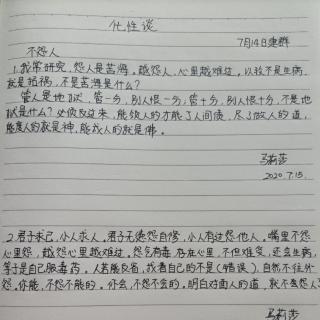 化性谈
7月14日建群
不怨人
1.我常研究,怨人是苦海。越怨人,心里越难过,以致不是生病,
就是招祸,不是苦海是什么?
管人是地狱,管一分,别人恨一分,管十分,别人恨十分,不是地
狱是什么?必须反过来,能领人的才能了人间债,尽了做人的道,
能度人的就是神,能成人的就是佛。
马莉莎
2020.7.15.
2.君子求己,小人求人。君子无德怨自修,小人有过怨他人。嘴里不怨
心里怨,越怨心里越难过。怨气有毒,存在心里,不但难受,还会生病,
等于是自己服毒药。人若能反省,找着自己的不是(错误),自然不往外
怨。你能,不怨不能的。你会,不怨不会的。明白对面人的道,就不怨人了
马莉莎